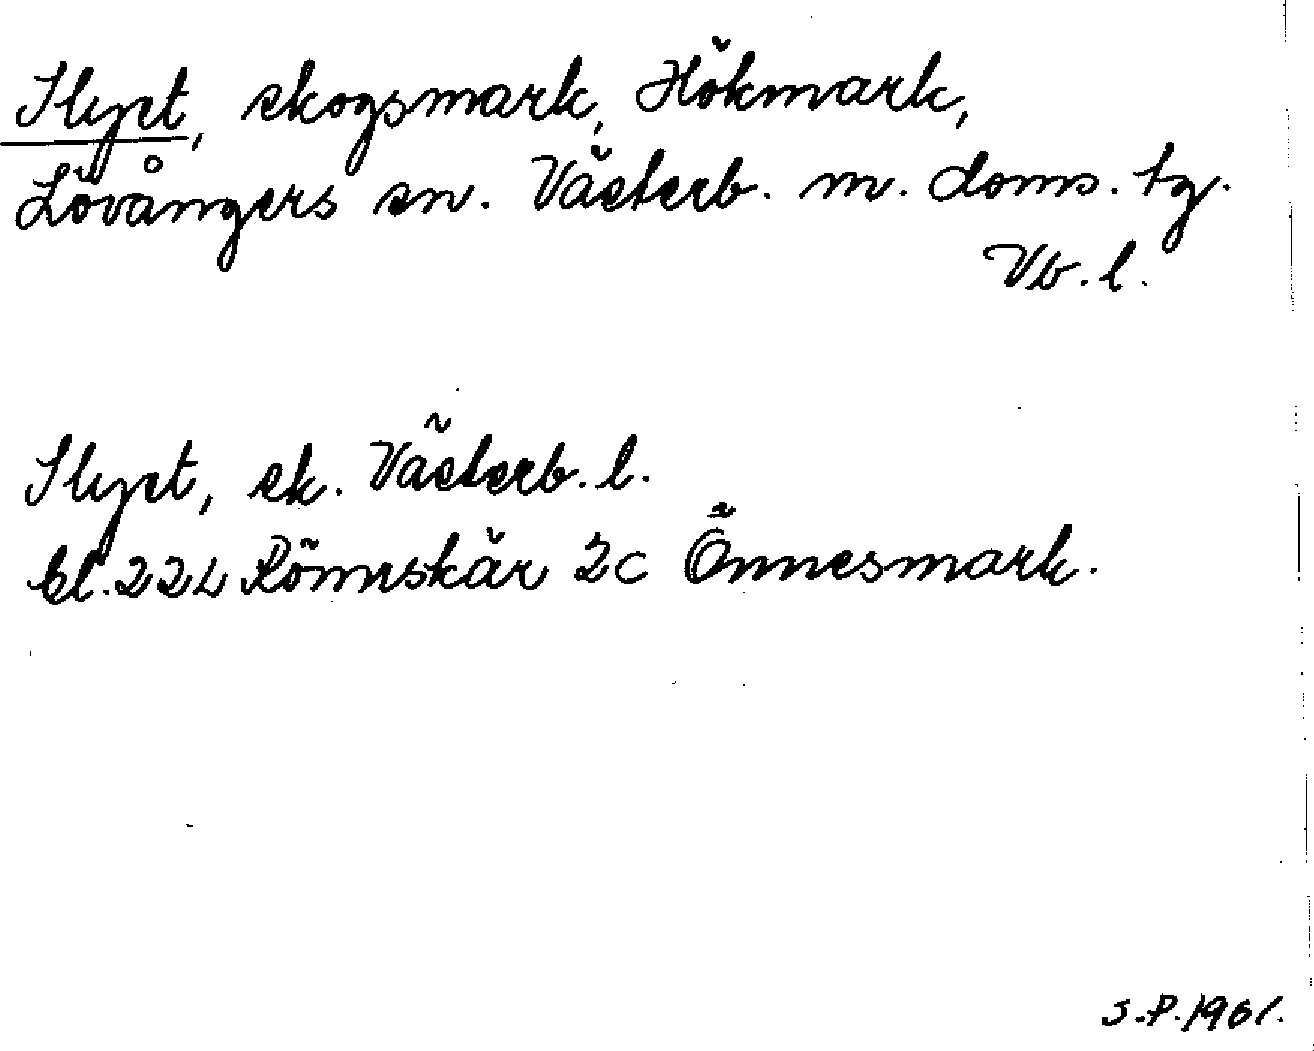 Slyet, skogsmark, Hökmark,
Lövångers sn. Västerb. m. doms. tg.
Vb. l.
Slyet, sk. Västerb. l.
bl. 22L Rönnskär 2c Önnesmark.
S.P. 1961.